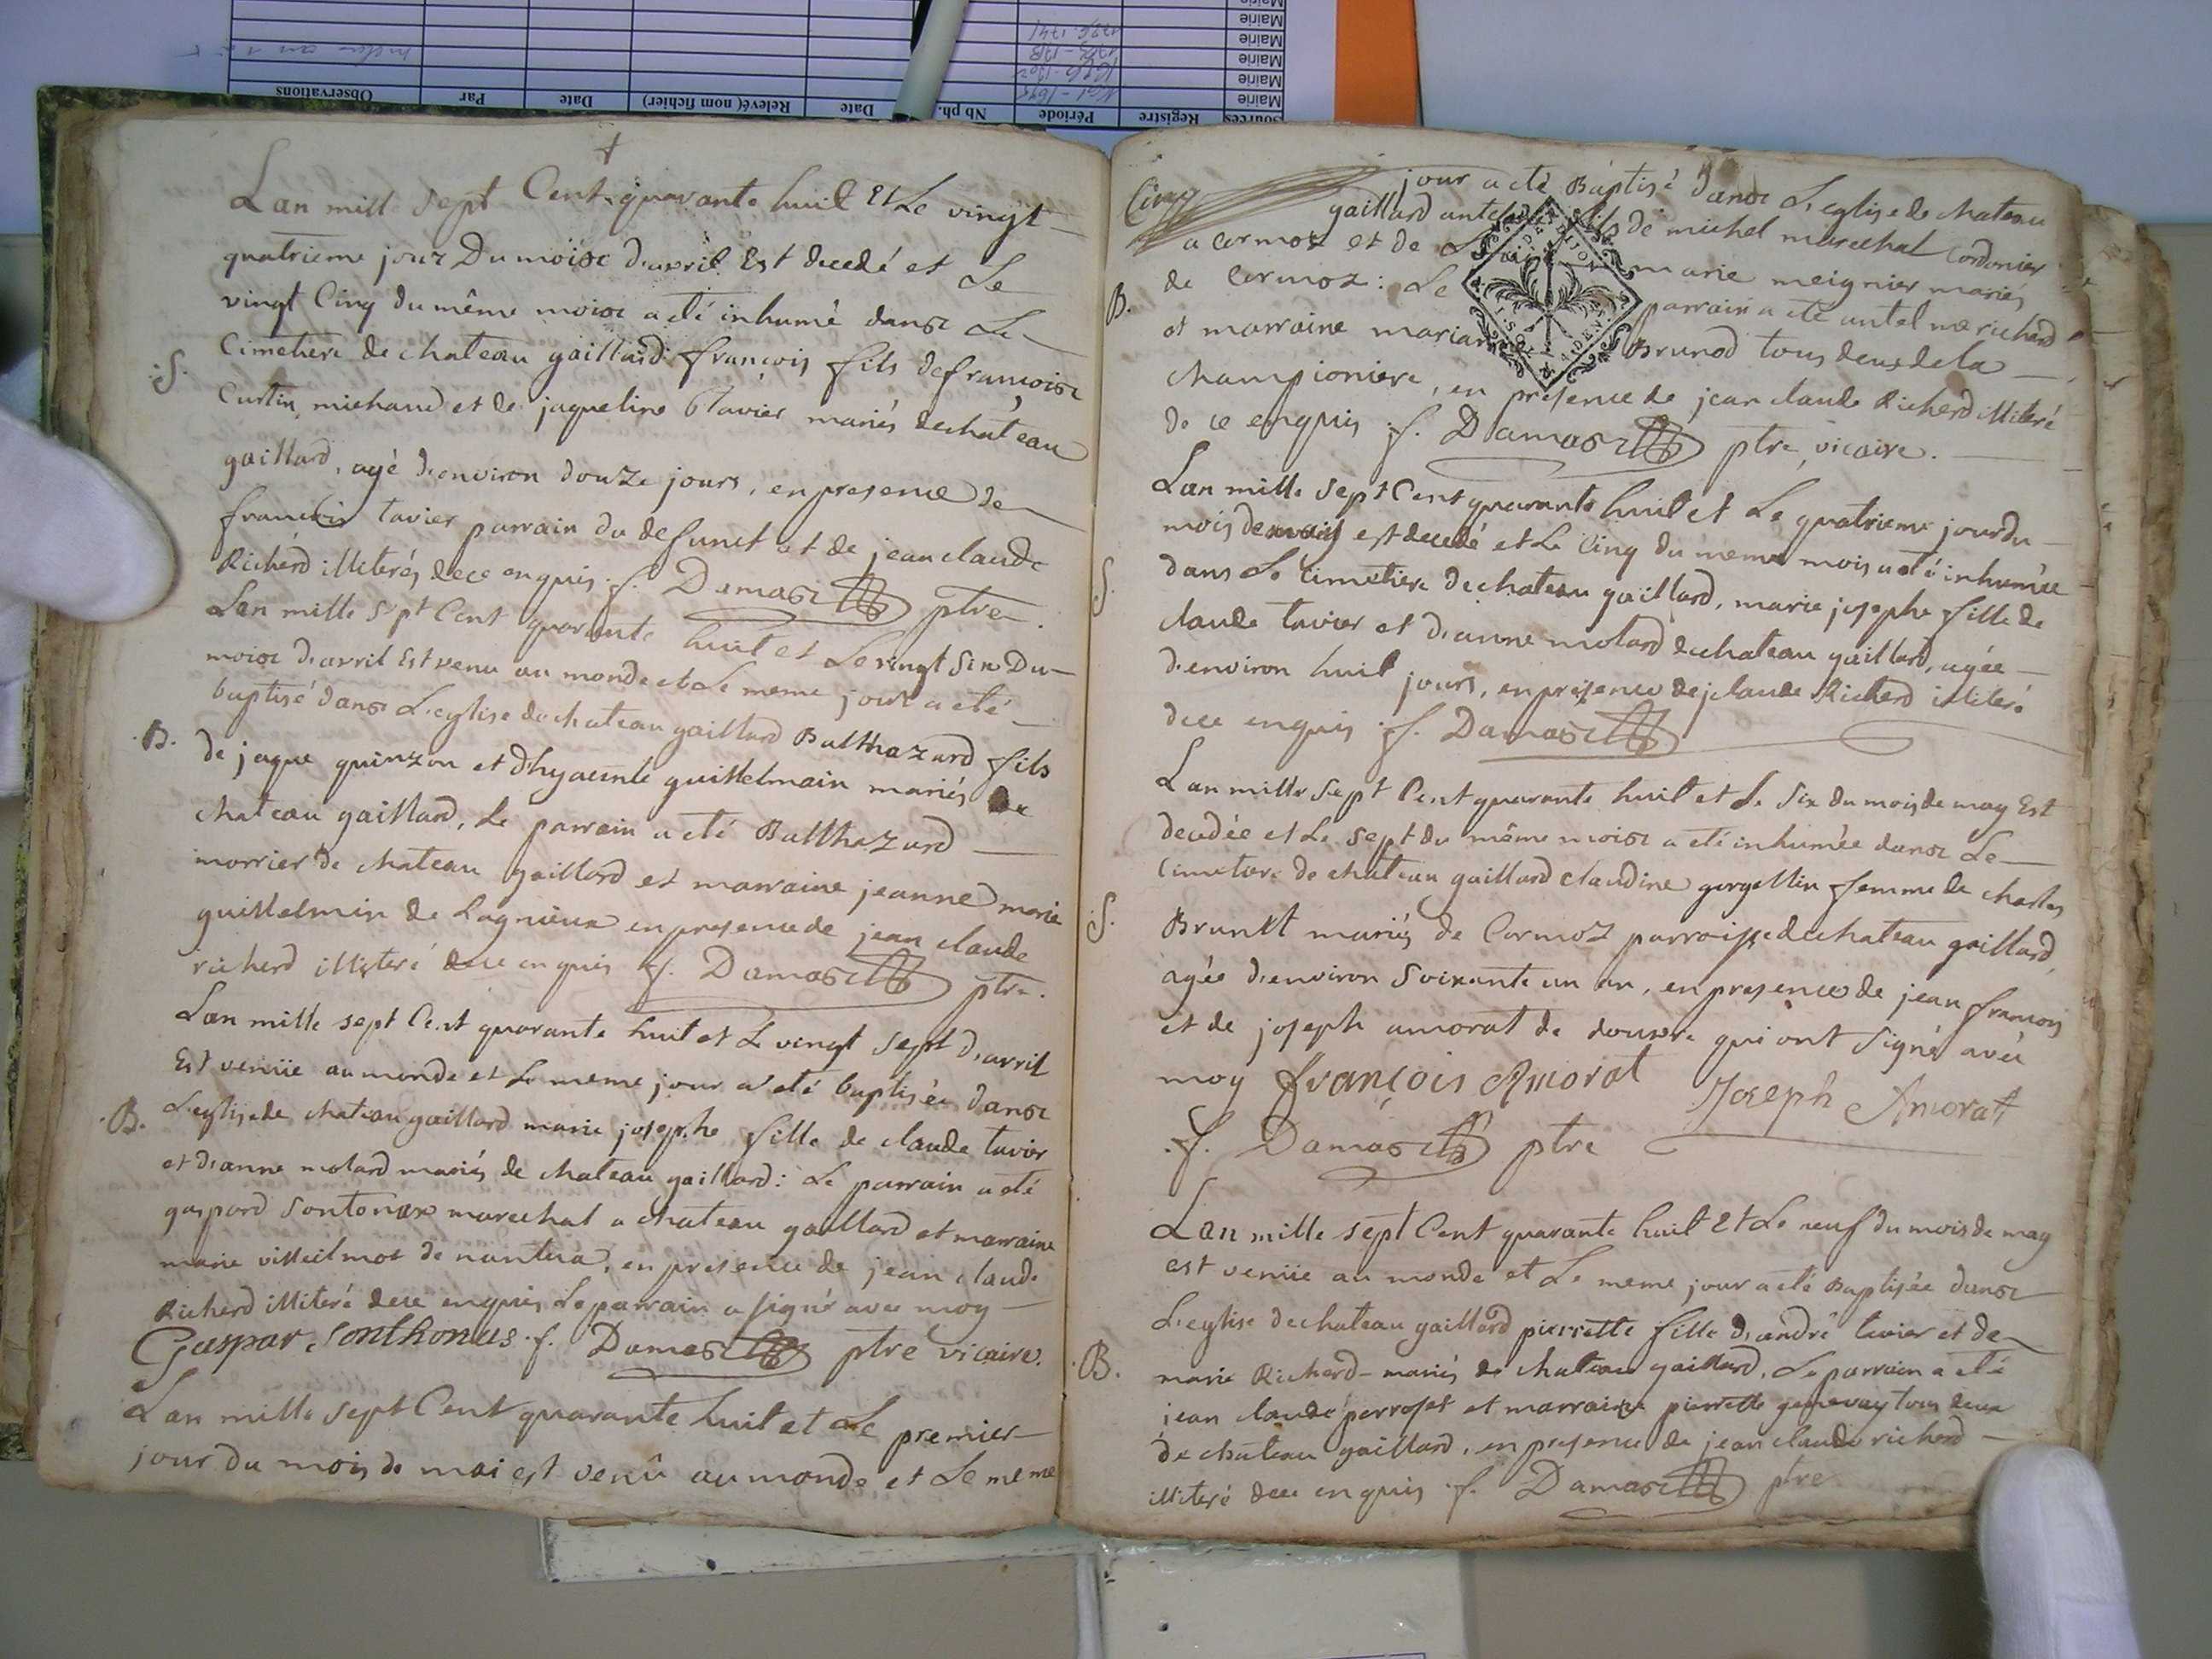 Observations
Par
Date
Relevé( nom fichier)
Date
Nb ph.
Période
Registre
Sources
Mairie
Mairie
Mairie
Mairie
Lan mill sept Cent quarante huit Et Le vingt
quatrieme jour Du moise d'avril Est decedé et Le
vingt Cinq du même moise a eté inhumé danse Le
Cimetiere de chateau gaillard françois fils de françoise
S.
Curtin michaud et de jaqueline tavier mariés de château
gaillard, agé d'environ douze jours, en presence de
francois tavier parrain du defunct et de jean claude
Richerd illiterés de ce enquis. f. Damas ptre.
Lan mille sept Cent quarante huit et Le vingt Six Du
moise d'avril Est venu au monde et Le meme jour a eté
baptisé danse L'eglise de chateau gaillard Balthazard fils
B.
de jaque quinzon et d'hyacinte guillelmain mariés de
chateau gaillard, Le parrain a eté Balthazard
morrier de chateau gaillard et marraine jeanne marie
guillelmin de Lagnieux en presence de jean claude
richerd illiteré de ce enquis f. Damas ptre.
Lan mille sept Cent quarante huit et Le vingt sept d'avril
Est venüe au monde et Le meme jour a eté baptisée danse
B.
L'eglise de chateau gaillard marie josephe fille de claude tavier
et d'anne molard mariés de chateau gaillard: Le parrain a eté
gaspard Sontonax marechal a chateau gaillard et marraine
marie de nantua, en presence de jean claude
Richerd illiteré de ce enquis Le parrain a signé avec moy
Gaspar Sonthonas f. Damas ptre vicaire.
Lan mille sept Cent quarante huit et Le premier
jour du mois de mai est venû au monde et Le meme
Cinq
jour a eté Baptisé danse L'eglise de chateau
gaillard fils de michel marechal Cordonier
a cormoz et de marie meignier mariés
B.
de Cormoz: Le parrain a eté richerd
et marraine Brunod tous deux de la
championiere, en presence de jean claude Richerd illiteré
de ce enquis f. Damas ptre vicaire.
Lan mille sept Cent quarante huit et Le quatrieme jour du
mois de est decedé et Le Cinq du meme mois a eté inhumée
S.
dans Le cimetiere de chateau gaillard, marie josephe fille de
claude tavier et d'anne molard de chateau gaillard, agée
d'environ huit jours, en presence de j claude Richerd illiteré
de ce enquis f. Damas
Lan mille sept Cent quarante huit et Le Six du mois de may Est
decedée et Le sept du même moise a eté inhumée danse Le
Cimetiere de chateau gaillard claudine gorgellin femme de charles
S.
Brunet mariés de Cormoz parroisse de chateau gaillard,
agée d'environ Soixante un an, en presence de jean francois
et de joseph amorat de douvre qui ont signé avec
moy François Amorat Joseph Amorat
f. Damas ptre
Lan mille sept Cent quarante huit Et Le neuf du mois de may
est venüe au monde et Le meme jour a eté Baptisée danse
L'eglise de chateau gaillard pierrette fille d'andré tavier et de
B.
marie Richerd mariés de chateau gaillard, Le parrain a eté
jean claude perroset et marraine pierrette genevay tous deux
de chateau gaillard, en presence de jean claude richerd
illiteré de ce enquis f. Damas ptre